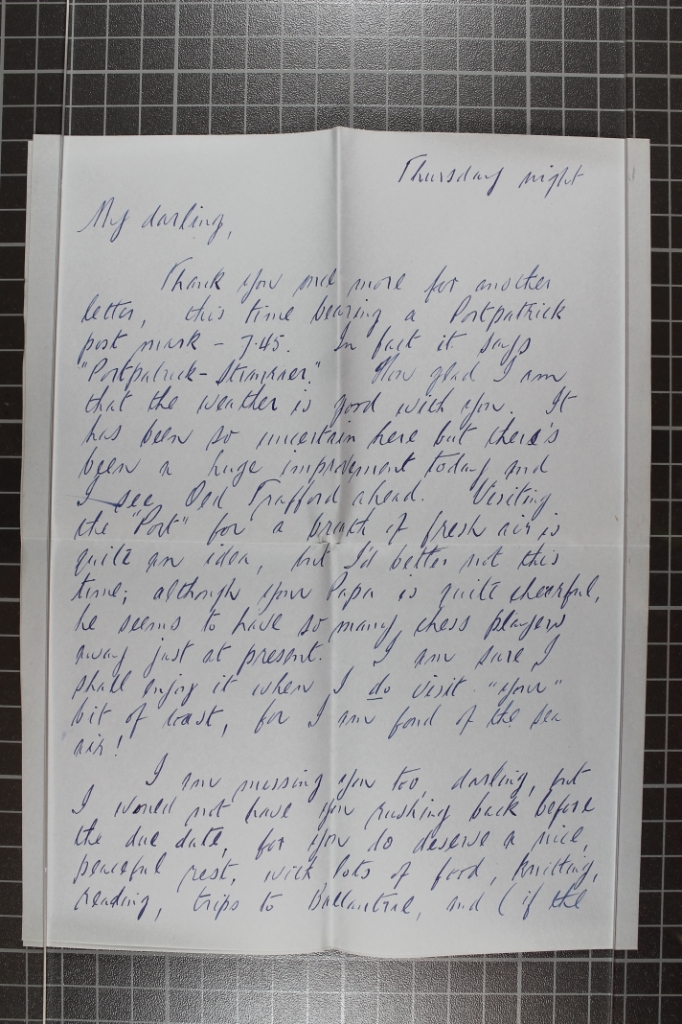 Thursday night
My darling,
Thank you once more for another
letter, this time bearing a Portpatrick
post mark - 7.45. In fact it says
"Portpatrick - Stranraer." How glad I am
that the weather is good with you. It
has been so uncertain here but there's
been a huge improvement today and
I see Old Trafford ahead. Visiting
the "Port" for a breath of fresh air is
quite an idea, but I'd better not this
time; although your Papa is quite cheerful,
he seems to have so many chess players
away just at present. I am sure I
shall enjoy it when I do visit "your"
bit of coast, for I am fond of the sea
air!
I am missing you too, darling, but
I would not have you rushing back before
the due date, for you do deserve a nice,
peaceful rest, with lots of food, knitting,
reading, trips to Ballantrae, and (if the